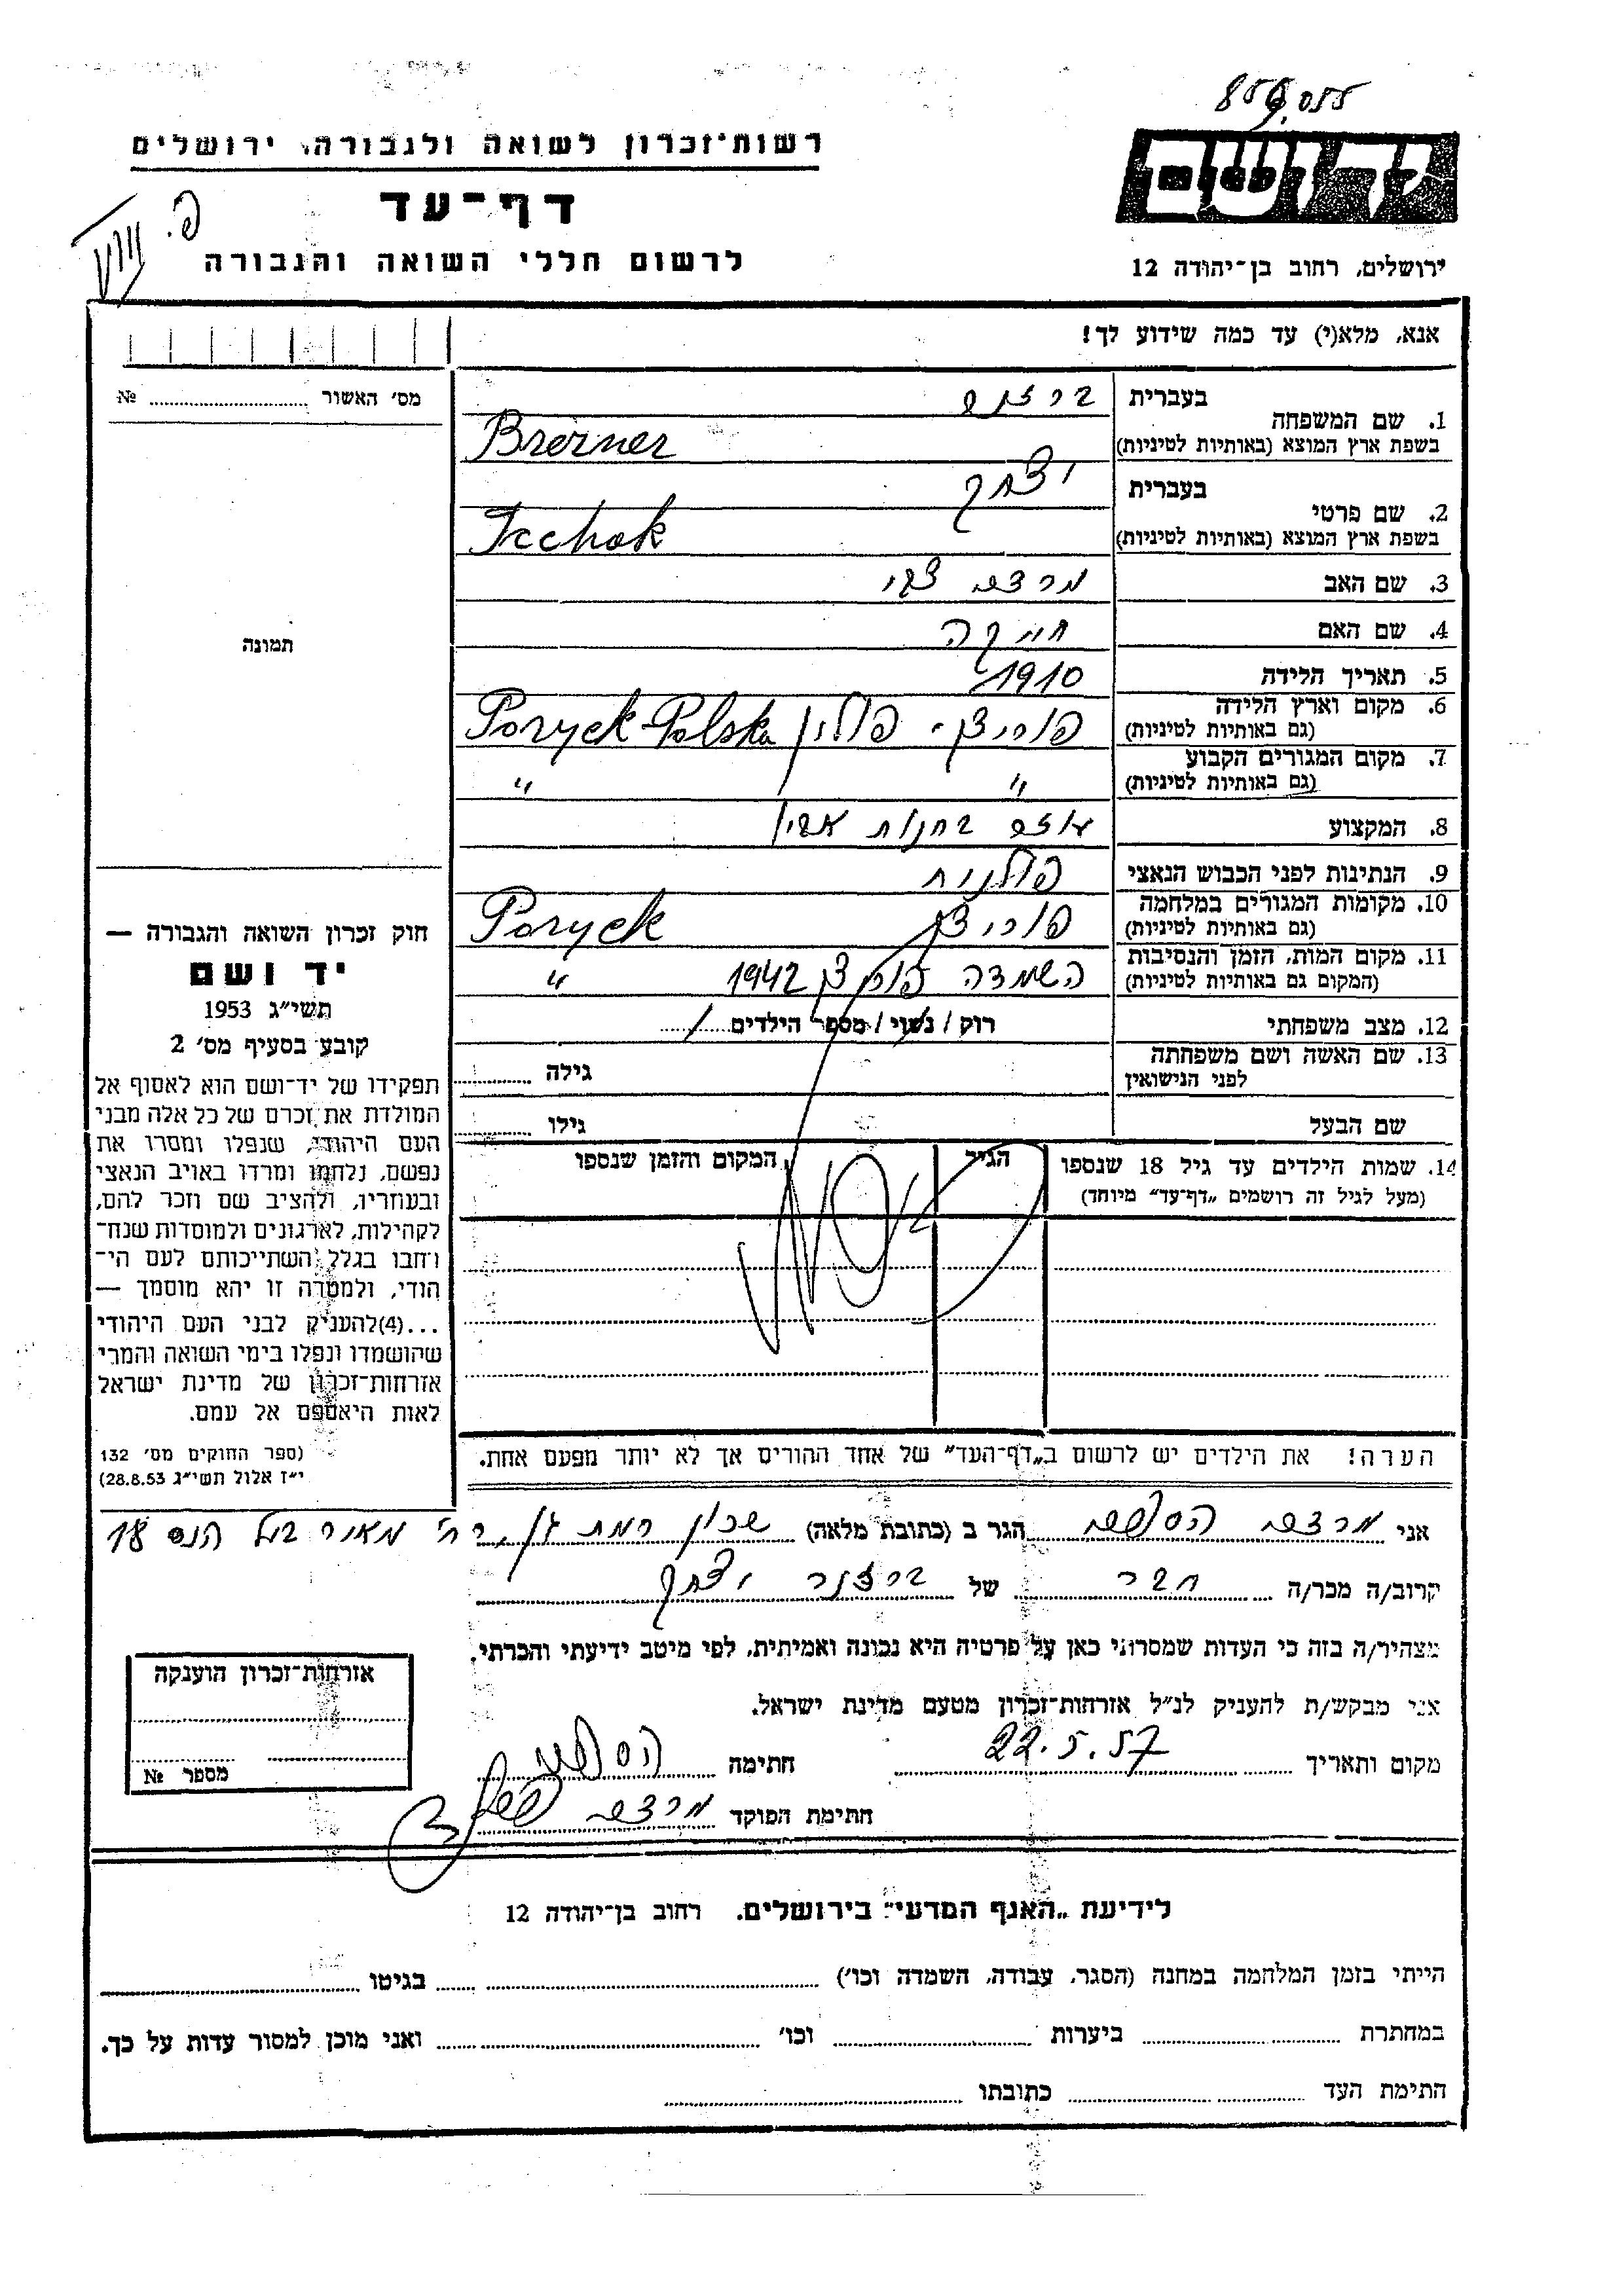 855,055
רשות־זכרון לשואה ולגבורה, ירושלים
דף־עד
לרשום חללי השואה והגבורה
יד ושם
ירושלים, רחוב בן־יהודה 12
אנא, מלא(י) עד כמה שידוע לך!
מס׳ האשור № 
תמונה
1. שם המשפחה
בעברית
בשפת ארץ המוצא (באותיות לטיניות) Brezner
2. שם פרטי
בעברית יצחק
בשפת ארץ המוצא (באותיות לטיניות) Icchok
3. שם האב מרדכי צבי
4. שם האם חייקה
5. תאריך הלידה 1910
6. מקום וארץ הלידה פוריצק - פולין Poryck-Polska
(גם באותיות לטיניות)
7. מקום המגורים הקבוע " "
(גם באותיות לטיניות)
8. המקצוע עוזר בחנות
9. הנתינות לפני הכבוש הנאצי פולנית
10. מקומות המגורים במלחמה פוריצק Poryck
(גם באותיות לטיניות)
11. מקום המות, הזמן והנסיבות השמדה פוריצק 1942 "
(המקום גם באותיות לטיניות)
12. מצב משפחתי רוק / נשוי / מספר הילדים
13. שם האשה ושם משפחתה
לפני הנישואין
גילה
שם הבעל גילו
14. שמות הילדים עד גיל 18 שנספו הגיל המקום והזמן שנספו
(מעל לגיל זה רושמים „דף־עד״ מיוחד)
הערה! את הילדים יש לרשום ב„דף־העד״ של אחד ההורים אך לא יותר מפעם אחת.
חוק זכרון השואה והגבורה —
יד ושם
תשי״ג 1953
קובע בסעיף מס׳ 2
תפקידו של יד־ושם הוא לאסוף אל
המולדת את זכרם של כל אלה מבני
העם היהודי, שנפלו ומסרו את
נפשם, נלחמו ומרדו באויב הנאצי
ובעוזריו, ולהציב שם וזכר להם,
לקהילות, לארגונים ולמוסדות שנח־
רחבו בגלל השתייכותם לעם הי־
הודי, ולמטרה זו יהא מוסמך —
...(4)להעניק לבני העם היהודי
שהושמדו ונפלו בימי השואה והמרי
אזרחות־זכרון של מדינת ישראל
לאות היאספם אל עמם.
(ספר החוקים מס׳ 132
י״ז אלול תשי״ג 28.8.53)
אני מרדכי הגר ב (כתובת מלאה) שכון רמת גן, רח׳ מאיר בעל הנס 18
קרוב/ה מכר/ה חבר של ברזנר יצחק
מצהיר/ה בזה כי העדות שמסרתי כאן על פרטיה היא נכונה ואמיתית, לפי מיטב ידיעתי והכרתי.
אני מבקש/ת להעניק לנ״ל אזרחות־זכרון מטעם מדינת ישראל.
מקום ותאריך 22.5.57 חתימה
חתימת הפוקד מרדכי
אזרחות־זכרון הוענקה
מספר №
לידיעת „האגף המדעי״ בירושלים. רחוב בן־יהודה 12
הייתי בזמן המלחמה במחנה (הסגר, עבודה, השמדה וכו׳) בגיטו
במחתרת ביערות וכו׳ ואני מוכן למסור עדות על כך.
התימת העד כתובתו